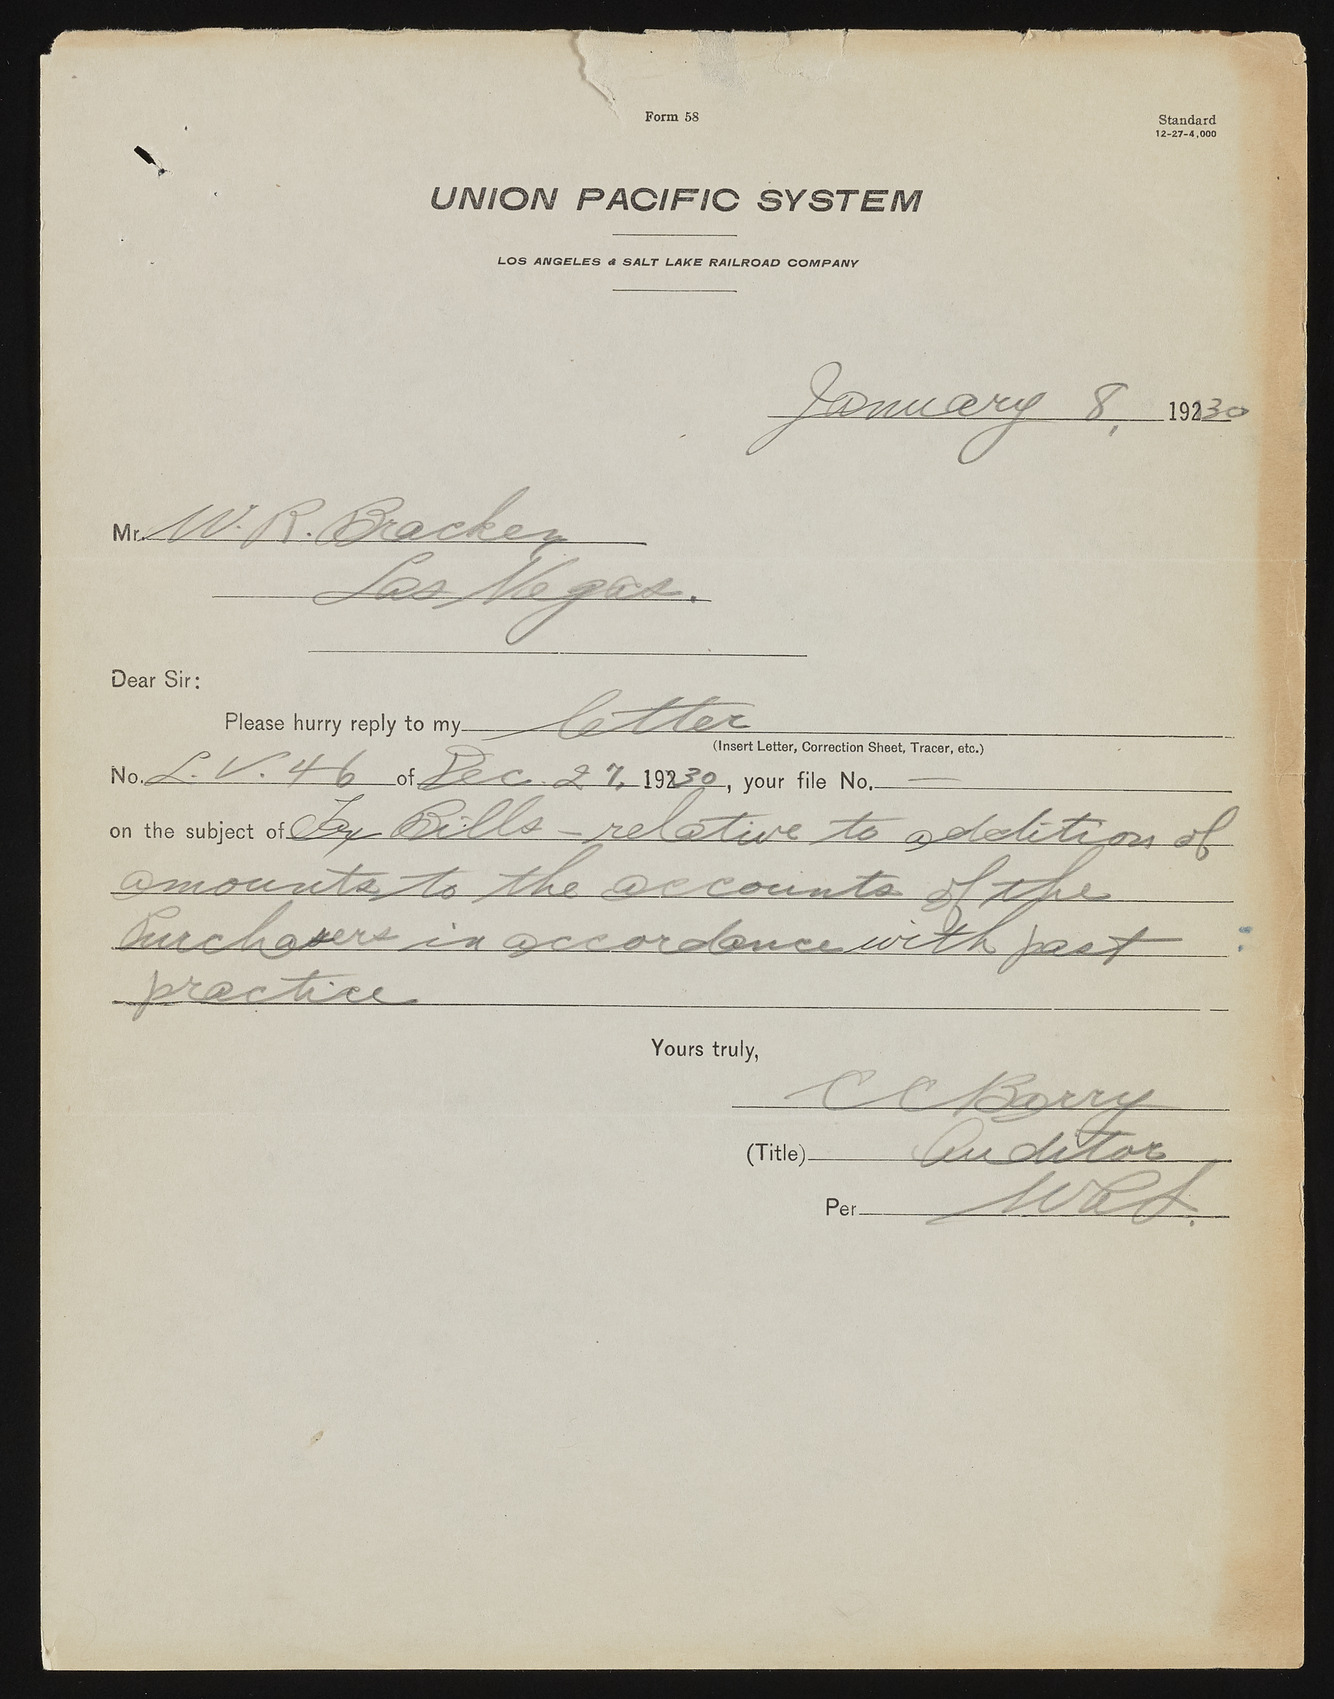 Form 58
Standard
12-27-4,000
UNION PACIFIC SYSTEM
LOS ANGELES & SALT LAKE RAILROAD COMPANY
January 8, 19230
Mr. W. R. Bracken
Las Vegas.
Dear Sir:
Please hurry reply to my letter
(Insert Letter, Correction Sheet, Tracer, etc.)
No. L. V. 46 of Dec. 27, 19230, your file No. —
on the subject of Tax Bills - relative to addition of
amounts to the accounts of the
Purchasers in accordance with past
practice
Yours truly,
C C Barry
(Title) Auditor
Per